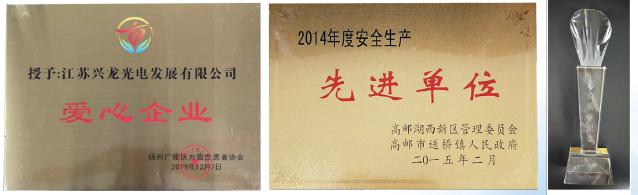 授予:江苏兴龙光电发展有限公司
爱心企业
扬州广陵区方圆志愿者协会
2019年12月7日
2014年度安全生产
先进单位
高邮湖西新区管理委员会
高邮市送桥镇人民政府
二〇一五年二月